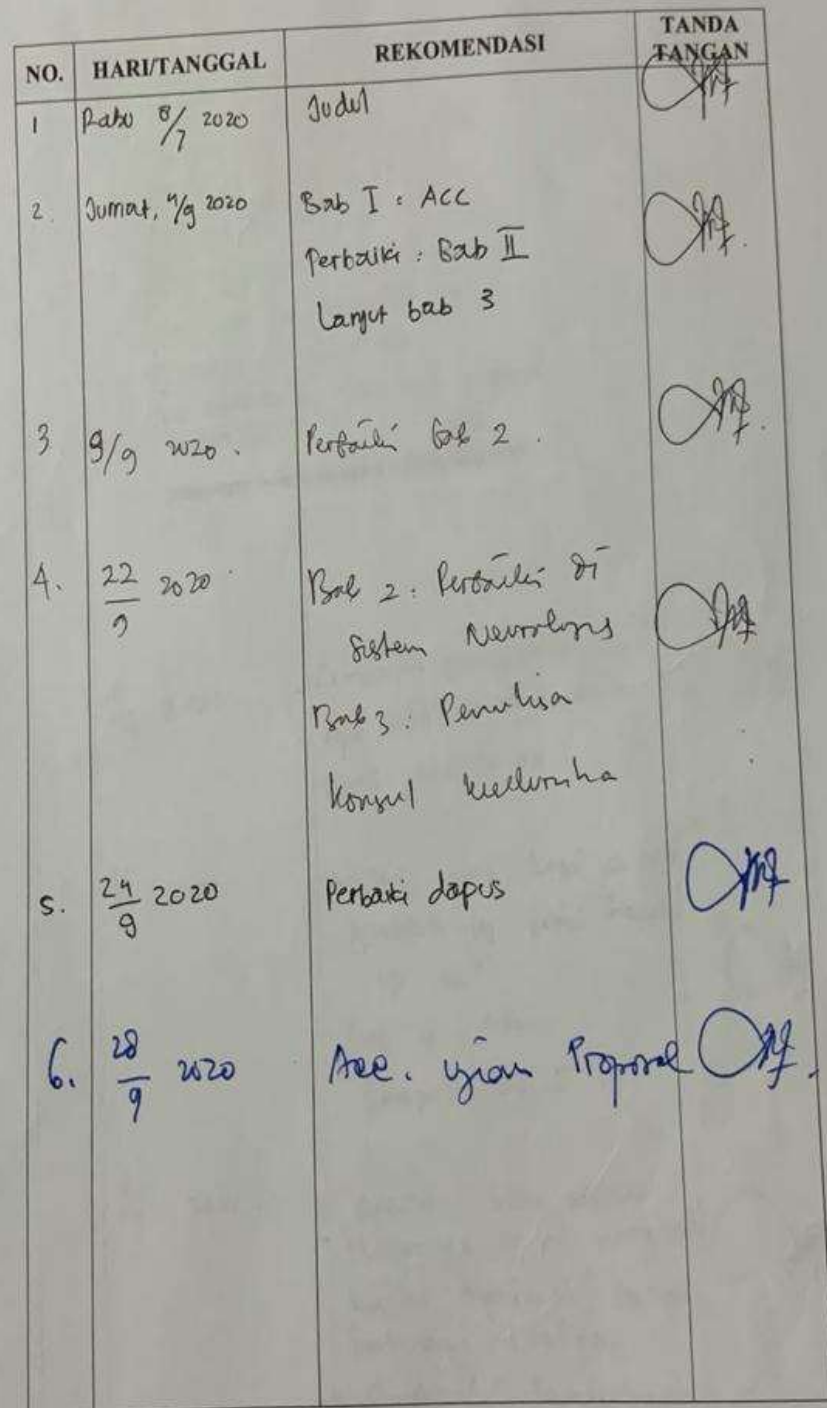 NO. HARI/TANGGAL REKOMENDASI TANDA TANGAN
1 Rabu 8/7 2020 Judul
2. Jumat, 4/9 2020 Bab I : ACC
Perbaiki : Bab II
Lanjut bab 3
3 9/9 2020. Perbaiki bab 2.
4. 22/9 2020 Bab 2 : Perbaiki di
sistem Neurologis
Bab 3 : Penulisa
Konsul
5. 24/9 2020 Perbaiki dapus
6. 28/9 2020 Acc. ujian Proposal